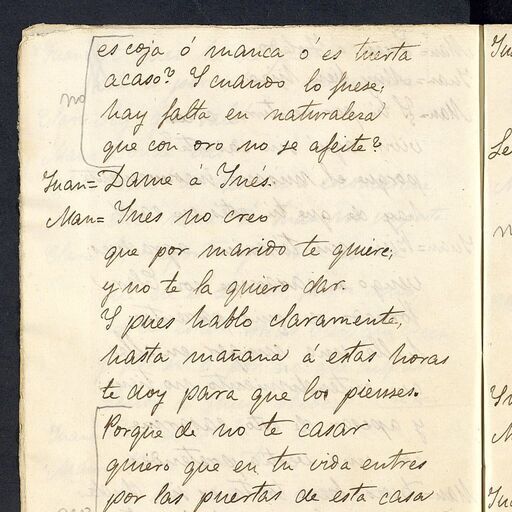 es coja ó manca ó es tuerta
acaso? Y cuando lo fuese,
no
hay falta en naturaleza
que con oro no se afeite?
Juan= Dame á Inés.
Man= Ines no creo
que por marido te quiere;
y no te la quiero dar.
Y pues hablo claramente,
hasta mañana á estas horas
te doy para que lo pienses.
Porque de no te casar
quiero que en tu vida entres
por las puertas de esta casa